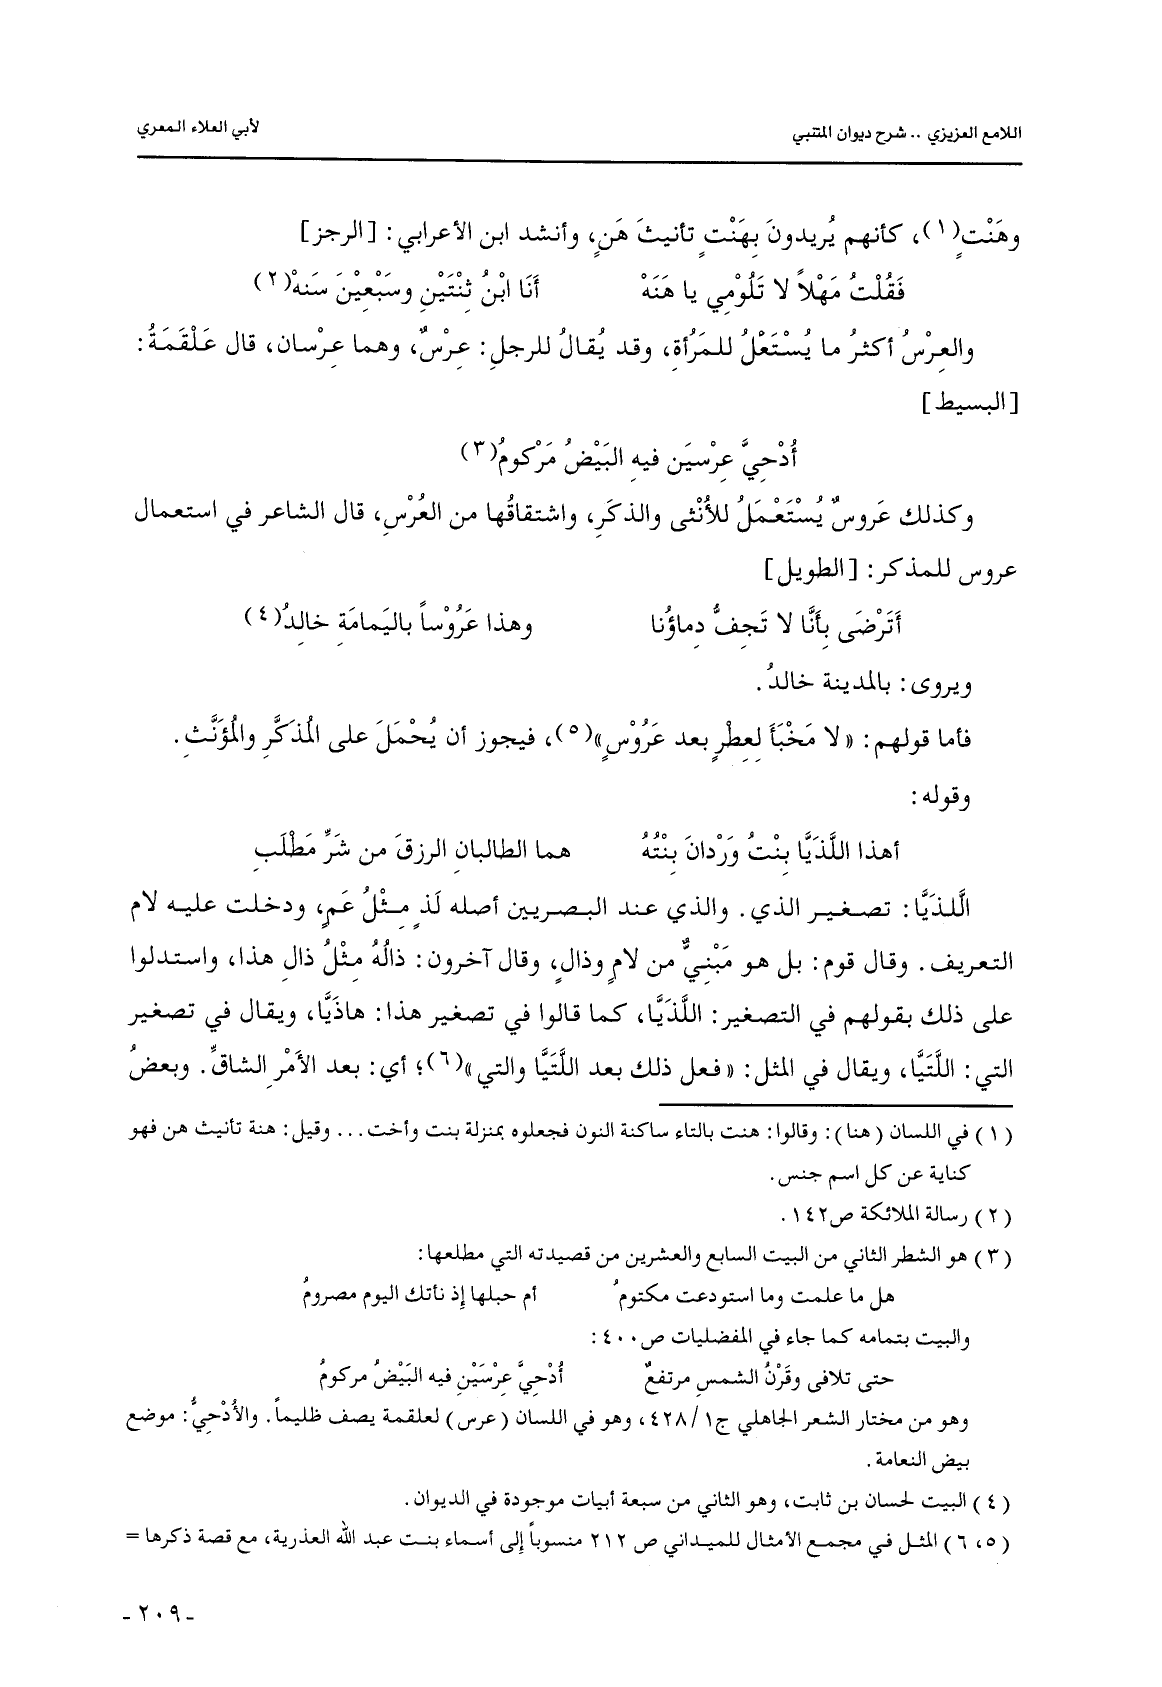 اللامع العزيزي .. شرح ديوان المتنبي
لأبي العلاء المعري
وهَنْتٍ(١)، كأنهم يُريدونَ بِهَنْتٍ تأنيثَ هَنٍ، وأنشد ابن الأعرابي: [الرجز]
فَقُلْتُ مَهْلاً لا تَلُوْمِي يا هَنَهْ أَنَا ابْنُ ثِنْتَيْنِ وسَبْعِيْنَ سَنهْ(٢)
والعِرْسُ أكثرُ ما يُسْتَعْلُ للمَرُأةِ، وقد يُقالُ للرجلِ: عِرْسٌ، وهما عِرْسان، قال عَلْقَمَةُ:
[البسيط]
أُدْحِيَّ عِرْسيَن فيهِ البَيْضُ مَرْكومُ(٣)
وكذلك عَروسٌ يُسْتَعْمَلُ للأُنْثى والذكَرِ، واشتقاقُها من العُرْسِ، قال الشاعر في استعمال
عروس للمذكر: [الطويل]
أَتَرْضَى بِأَنَّا لا تَجِفُّ دِماؤُنا وهذا عَرُوْساً باليَمامَةِ خالِدُ(٤)
ويروى: بالمدينة خالدُ.
فأما قولهم: «لا مَخْبَأَ لِعِطْرٍ بعد عَرُوْسٍ»(٥)، فيجوز أن يُحْمَلَ على المُذَكَّرِ والمُؤَنَّثِ.
وقوله:
أهذا اللَّذَيَّا بِنْتُ وَرْدانَ بِنْتُهُ هما الطالبانِ الرزقَ من شَرِّ مَطْلَبِ
الَّلذَيَّا: تصغير الذي. والذي عند البصريين أصله لَذٍ مِثْلُ عَمٍ، ودخلت عليه لام
التعريف. وقال قوم: بل هو مَبْنِيٌّ من لامٍ وذالٍ، وقال آخرون: ذالُهُ مِثْلُ ذالِ هذا، واستدلوا
على ذلك بقولهم في التصغير: اللَّذَيَّا، كما قالوا في تصغير هذا: هاذَيَّا، ويقال في تصغير
التي: اللَّتَيَّا، ويقال في المثل: «فعل ذلك بعد اللَّتَيَّا والتي»(٦)؛ أي: بعد الأمْرِ الشاقِّ. وبعضُ
(١) في اللسان (هنا): وقالوا: هنت بالتاء ساكنة النون فجعلوه بمنزلة بنت وأخت... وقيل: هنة تأنيث هن فهو
كناية عن كل اسم جنس.
(٢) رسالة الملائكة ص١٤٢.
(٣) هو الشطر الثاني من البيت السابع والعشرين من قصيدته التي مطلعها:
هل ما علمت وما استودعت مكتومُ أم حبلها إذ نأتك اليوم مصرومُ
والبيت بتمامه كما جاء في المفضليات ص٤٠٠:
حتى تلافى وقَرْنُ الشمسِ مرتفعٌ أُدْحِيَّ عِرْسَيْنِ فيه البَيْضُ مركومُ
وهو من مختار الشعر الجاهلي ج١/ ٤٢٨، وهو في اللسان (عرس) لعلقمة يصف ظليماً. والأُدْحِيُّ: موضع
بيض النعامة.
(٤) البيت لحسان بن ثابت، وهو الثاني من سبعة أبيات موجودة في الديوان.
(٥، ٦) المثل في مجمع الأمثال للميداني ص ٢١٢ منسوباً إلى أسماء بنت عبد الله العذرية، مع قصة ذكرها =
- ٢٠٩ -